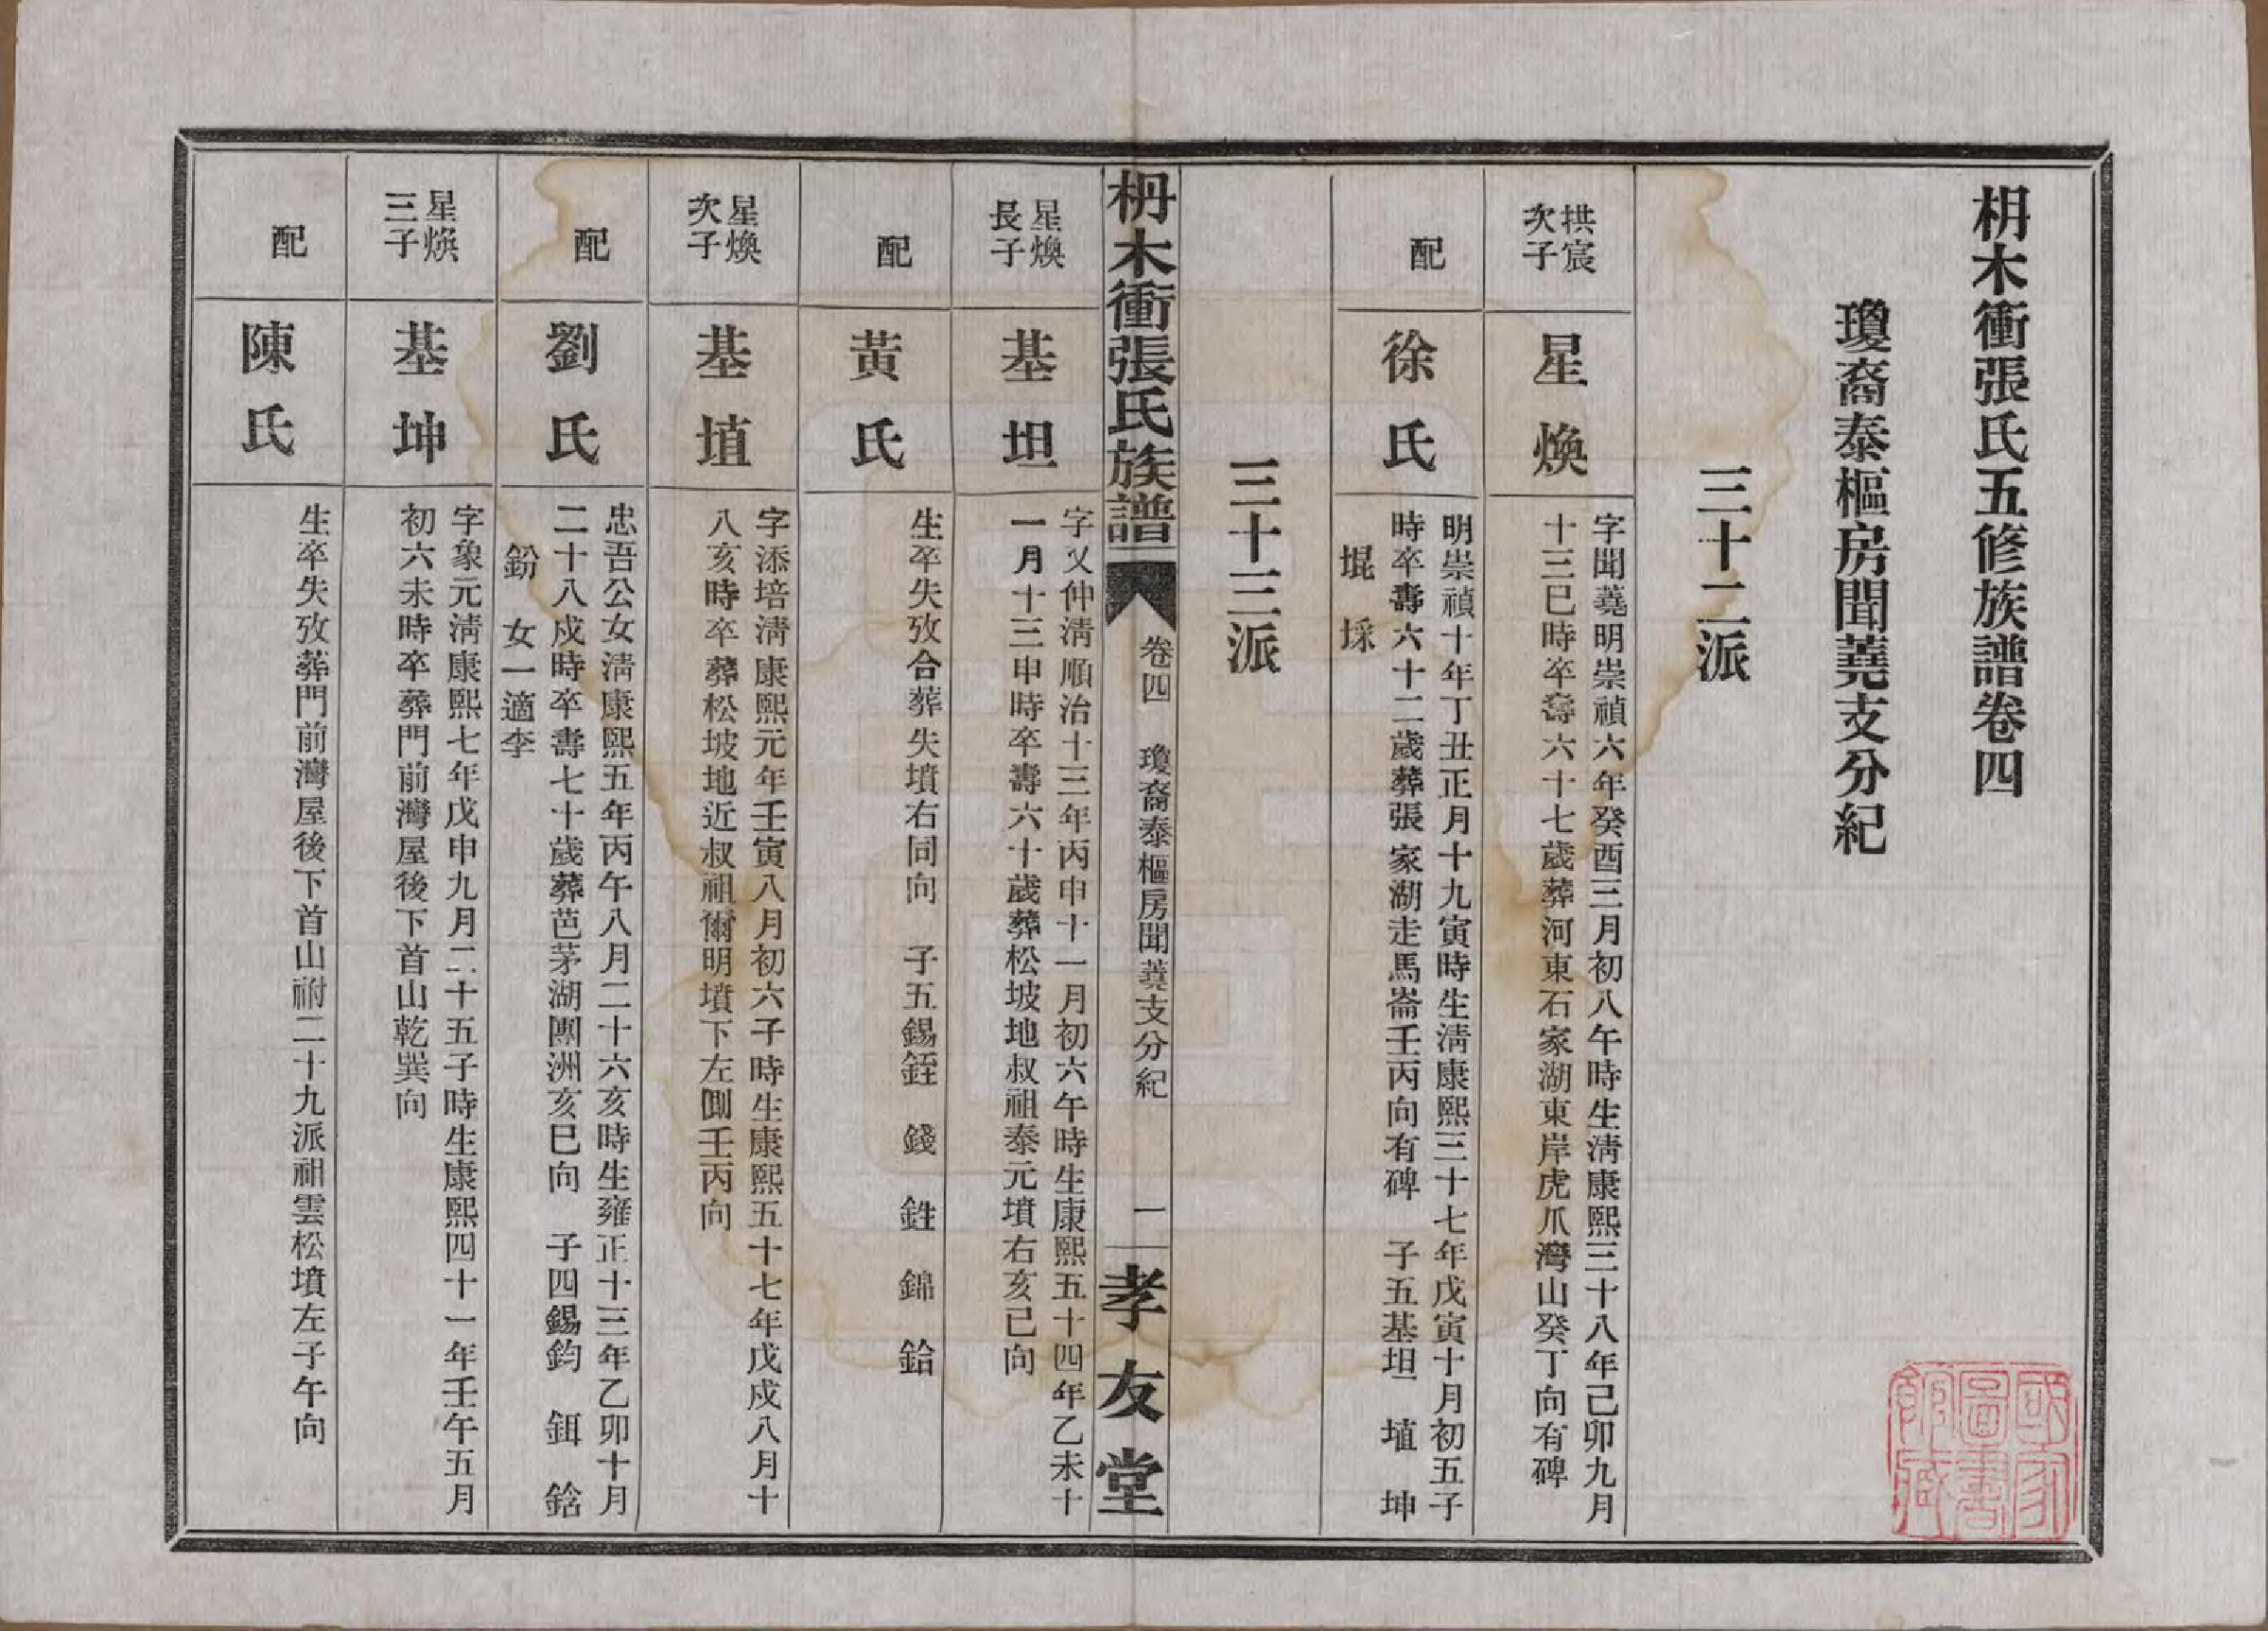 枬木衝張氏五修族譜卷四
瓊裔泰樞房聞蕘支分紀
三十二派
拱宸
次子
星煥
字聞蕘明崇禎六年癸酉三月初八午時生淸康熙三十八年己卯九月
十三巳時卒壽六十七歲葬河東石家湖東岸虎爪灣山癸丁向有碑
配
徐氏
明崇禎十年丁丑正月十九寅時生淸康熙三十七年戊寅十月初五子
時卒壽六十二歲葬張家湖走馬崙壬丙向有碑 子五基坦 埴 坤
堒 埰
三十三派
枬木衝張氏族譜
卷四 瓊裔泰樞房聞蕘支分紀
一
孝友堂
星煥
長子
基坦
字乂仲淸順治十三年丙申十一月初六午時生康熙五十四年乙未十
一月十三申時卒壽六十歲葬松坡地叔祖泰元墳右亥已向
配
黃氏
生卒失攷合葬失墳右同向 子五錫銍 錢 鉎 錦 鉿
星煥
次子
基埴
字添培淸康熙元年壬寅八月初六子時生康熙五十七年戊戌八月十
八亥時卒葬松坡地近叔祖爾明墳下左側壬丙向
配
劉氏
忠吾公女淸康熙五年丙午八月二十六亥時生雍正十三年乙卯十月
二十八戍時卒壽七十歲葬芭茅湖團洲亥巳向 子四錫鈞 鉺 鋡
鈖 女一適李
星煥
三子
基坤
字象元淸康熙七年戊申九月二十五子時生康熙四十一年壬午五月
初六未時卒葬門前灣屋後下首山乾巽向
配
陳氏
生卒失攷葬門前灣屋後下首山祔二十九派祖雲松墳左子午向
國家
圖書
館藏